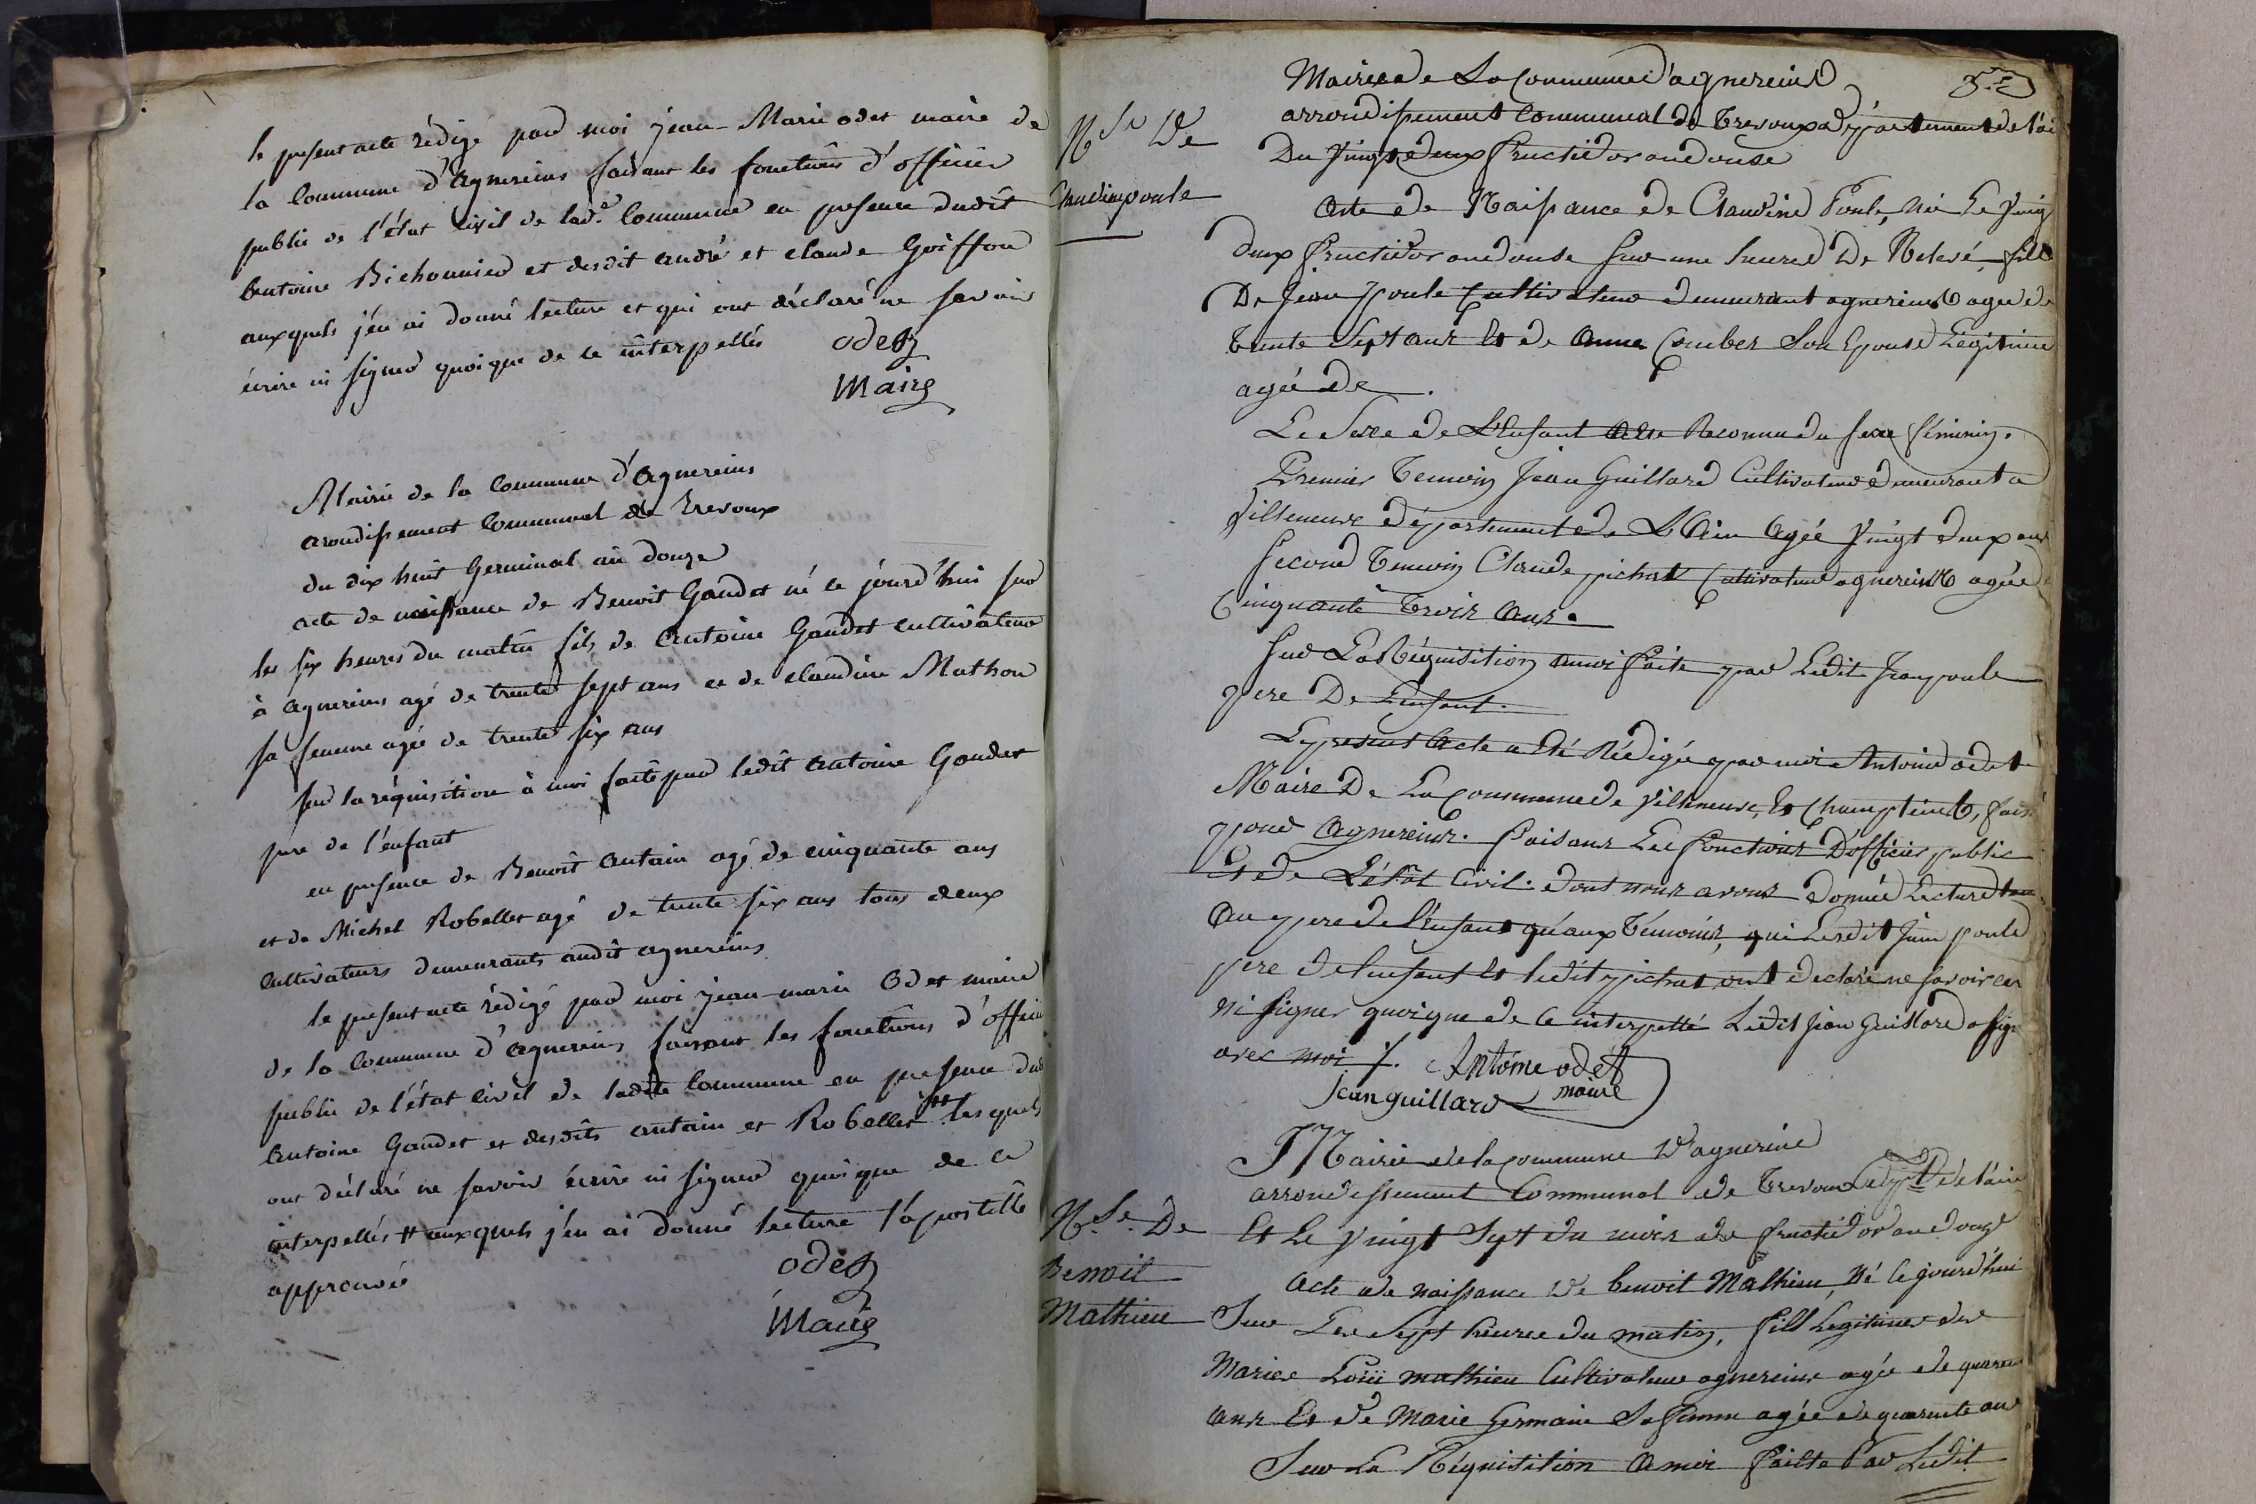 le present acte rédigé par moi jean-Marie odet maire de
la Commune d'agnereins faisant les fonctions d'officier
public de l'état civil de lad.e Commune en presence dudit
antoine Bichonnier et desdit andré et claude Goiffon
auxquels j'en ai donné lecture et qui ont déclaré ne savoir
écrire ni signer quoique de ce interpellés
odet
Maire
Mairie de la Commune d'agnereins
arondissement Communal de Trevoux
du dix huit Germinal an douze
acte de naissance de Benoit Gaudet né ce jourd'hui sur
les six heures du matin fils de antoine Gaudet cultivateur
à agnereins agé de trente sept ans et de claudine Mathon
sa femme agée de trente six ans
sur la réquisition à moi faite par ledit antoine Gaudet
pere de l'enfant
en presence de Benoît antain agé de cinquante ans
et de Michel Robellet agé de trente six ans tous deux
cultivateurs demeurants audit agnereins
le present acte rédigé par moi jean-marie Odet maire
de la Commune d'agnereins faisant les fonctions d'officier
public de l'état civil de ladite Commune en presence dud
antoine Gaudet et desdits antain et Robellet # lesquels
ont déclaré ne savoir écrire ni signer quoique de ce
interpellés # auxquels j'en ai donné lecture l'apostille
approuvée
odet
Maire
Mairie de La Commune d'agnereins
arrondissement Communal de Trevoux département de l'ai
Du Vingt deux fructidor an douse
N.se De
Claudine poule
Acte de Naissance de Claudine Poule, née Le Ving
deux fructidor an douse sur une heure De Relevé, fille
De Jean poule Cultivateur demeurant agnereins agee de
trente sept ans Et de Anne Comber Son Epouse Legitime
agée de
Le Sexe de L'enfant a été Reconnu du sexe féminin.
Premier Temoin Jean Guillard Cultivateur demeurant a
Villeneuve département de L'Ain agée Vingt deux ans
Second Temoin Claude pichat Cultivateur agnereins agée
Cinquante Trois ans.
Sur La Réquisition a moi faite par Ledit Jean poule
pere De L'enfant.
Le present Acte a été Rédigée par moi Antoine odet
Maire De La Commune de Villeneuve, Et Champteins,
pour Agnereins. faisant Les fonctions D'officier public
Et de L'état Civil. dont nous avons donnée Lecture
au pere de l'enfant qu'aux Témoins, qui Lesdit Jean poule
pere de l'enfant Et ledit pichat ont déclaré ne savoir
ni signer quoique de ce interpellé Ledit Jean Guillard a sign
avec moi ./. Antoine odet
maire
Jean guillard
Mairie de la Commune d'agnereins
arrondissement Communal de Trevoux Dept. de l'ain
N.se De
Benoit
Mathieu
Et Le Vingt Sept du mois de fructidor an douze
Acte de naissance de benoit Mathieu, né ce jourd'hui
Sur Les Sept heures du matin, fils Legitime de
Marie Mathieu Cultivateur agnereins agée de quarante
ans Et de Marie Germain Sa femme agée de quarante ans
Sur La Réquisition a moi faite Par Ledit